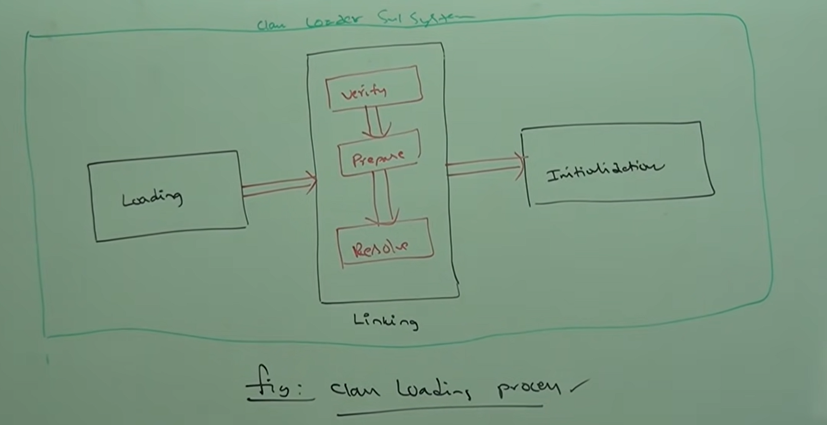 Class Loader Sub System
Loading
Verify
Prepare
Resolve
Linking
Initialization
fig: Class Loading process